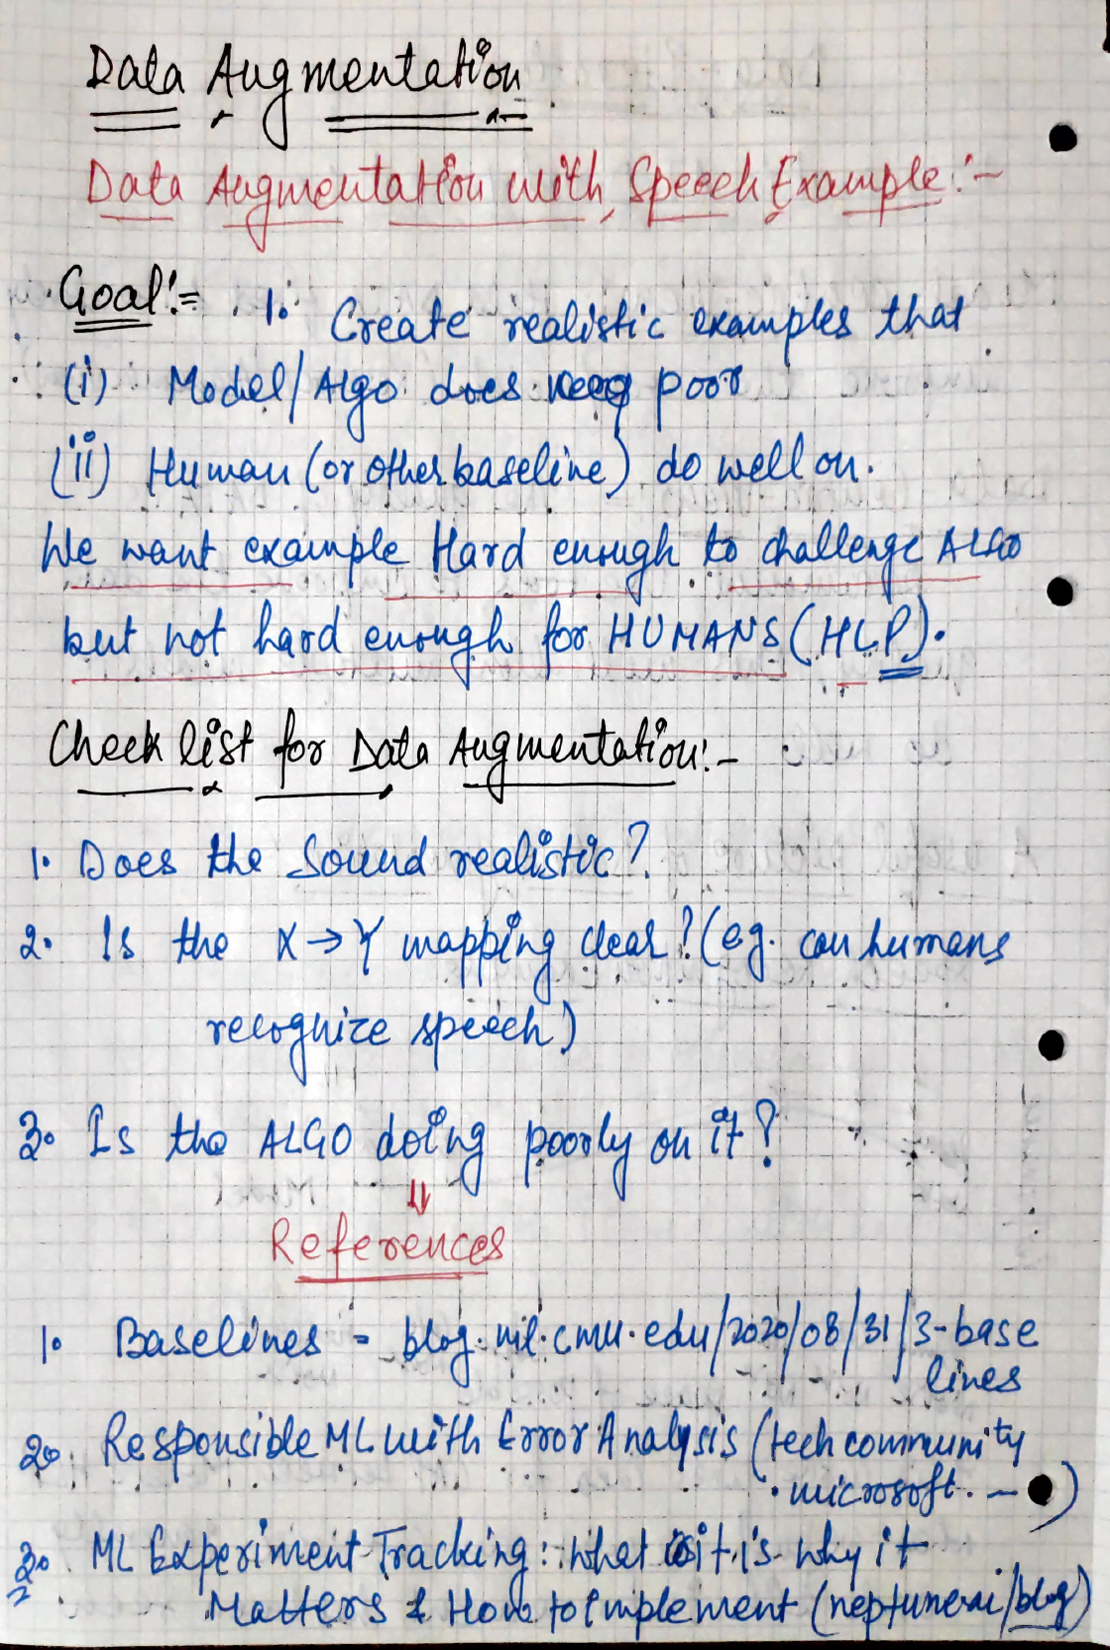 Data Augmentation
Data Augmentation with Speech Example:-
Goal:- 1. Create realistic examples that
(i) Model/Algo does very poor
(ii) Human (or other baseline) do well on.
We want example Hard enough to challenge ALGO
but not hard enough for HUMANS (HLP).
Check list for Data Augmentation:-
1. Does the Sound realistic?
2. Is the X → Y mapping clear? (eg. can humans
recognize speech)
3. Is the ALGO doing poorly on it?
⇓
References
1. Baselines - blog.ml.cmu.edu/2020/08/31/3-base
lines
2. Responsible ML with Error Analysis (tech community
.microsoft. — )
3. ML Experiment Tracking: what is it is why it
Matters & How to Implement (neptune.ai/blog)